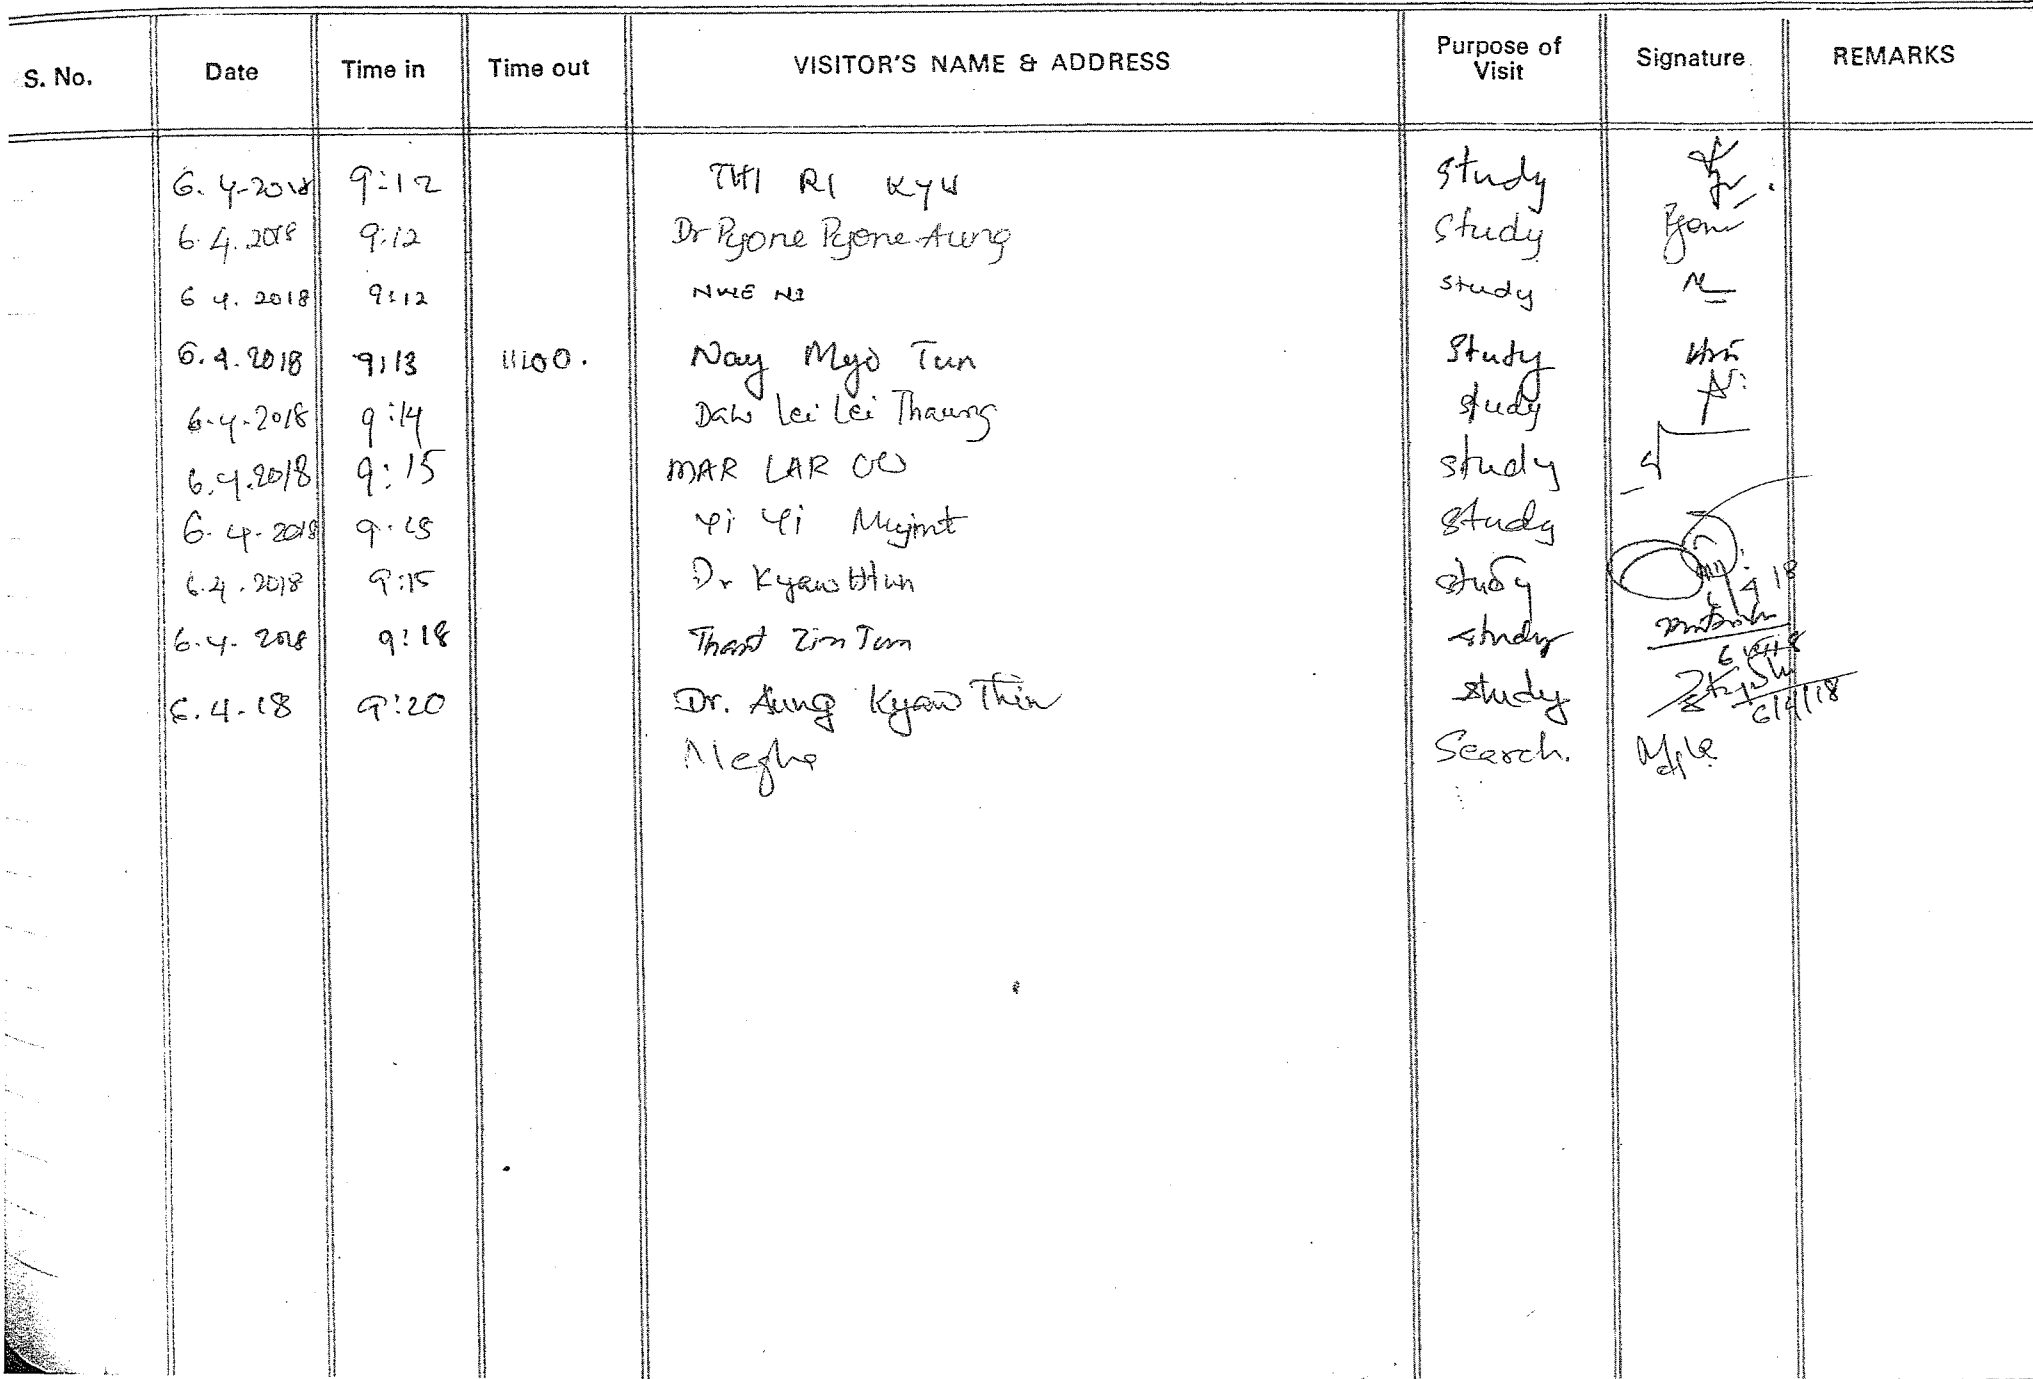 S. No. Date Time in Time out VISITOR'S NAME & ADDRESS Purpose of Visit Signature REMARKS
6.4-2018 9:12 THI RI KYU study
6.4.2018 9:12 Dr Pyone Pyone Aung study Pyone
6 4. 2018 9:12 NWE NI study
6.4.2018 9:13 11:00. Nay Myo Tun Study
6.4.2018 9:14 Daw Lei Lei Thaung study
6.4.2018 9:15 MAR LAR OO study
6.4.2018 9:15 Yi Yi Myint study
6.4.2018 9:15 Dr Kyaw Htun study
6.4.2018 9:18 Thant Zin Tun study
6.4.18 9:20 Dr. Aung Kyaw Thin study 6/4/18
Megha Search.